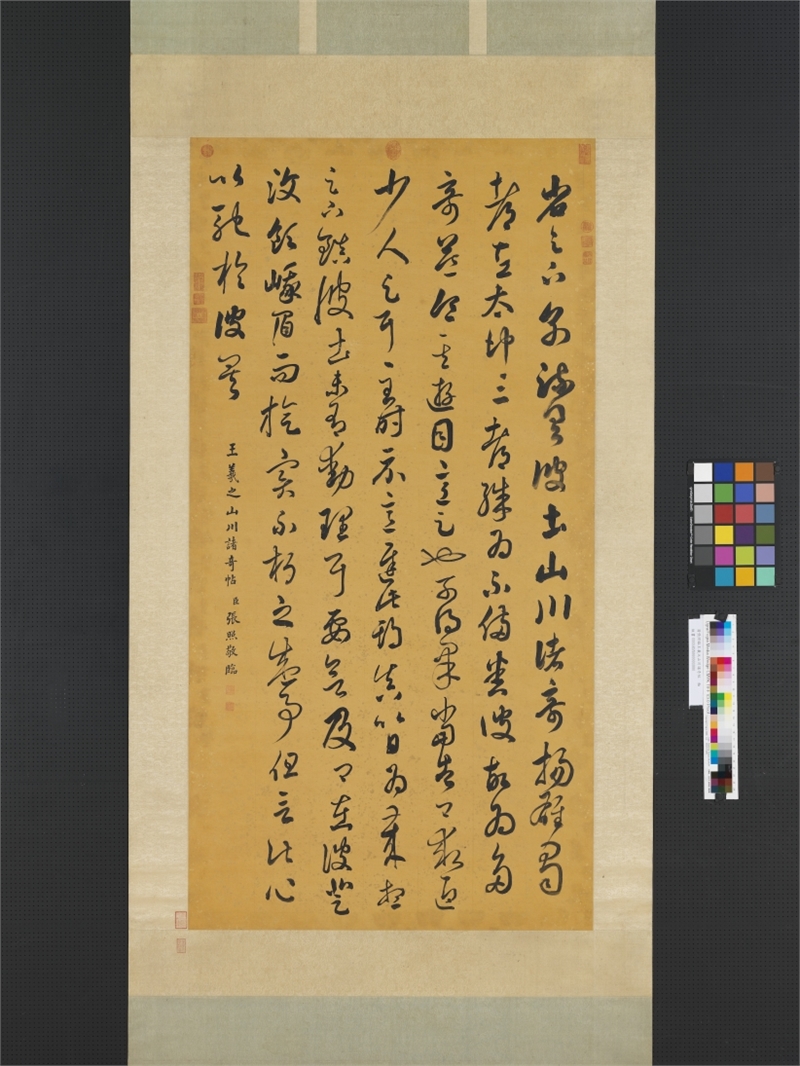 省足下別疏具彼土山川諸奇揚雄蜀
都左太冲三都殊為不備悉彼故為多
奇益令其遊目意足也可得果當告卿求迎
少人足耳至時示意遲此期真以日為歲想
足下鎮彼土未有動理耳要欲及卿在彼登
汶領峨眉而旋實不朽之盛事但言此心
以馳於彼矣
王羲之山川諸奇帖 臣張照敬臨